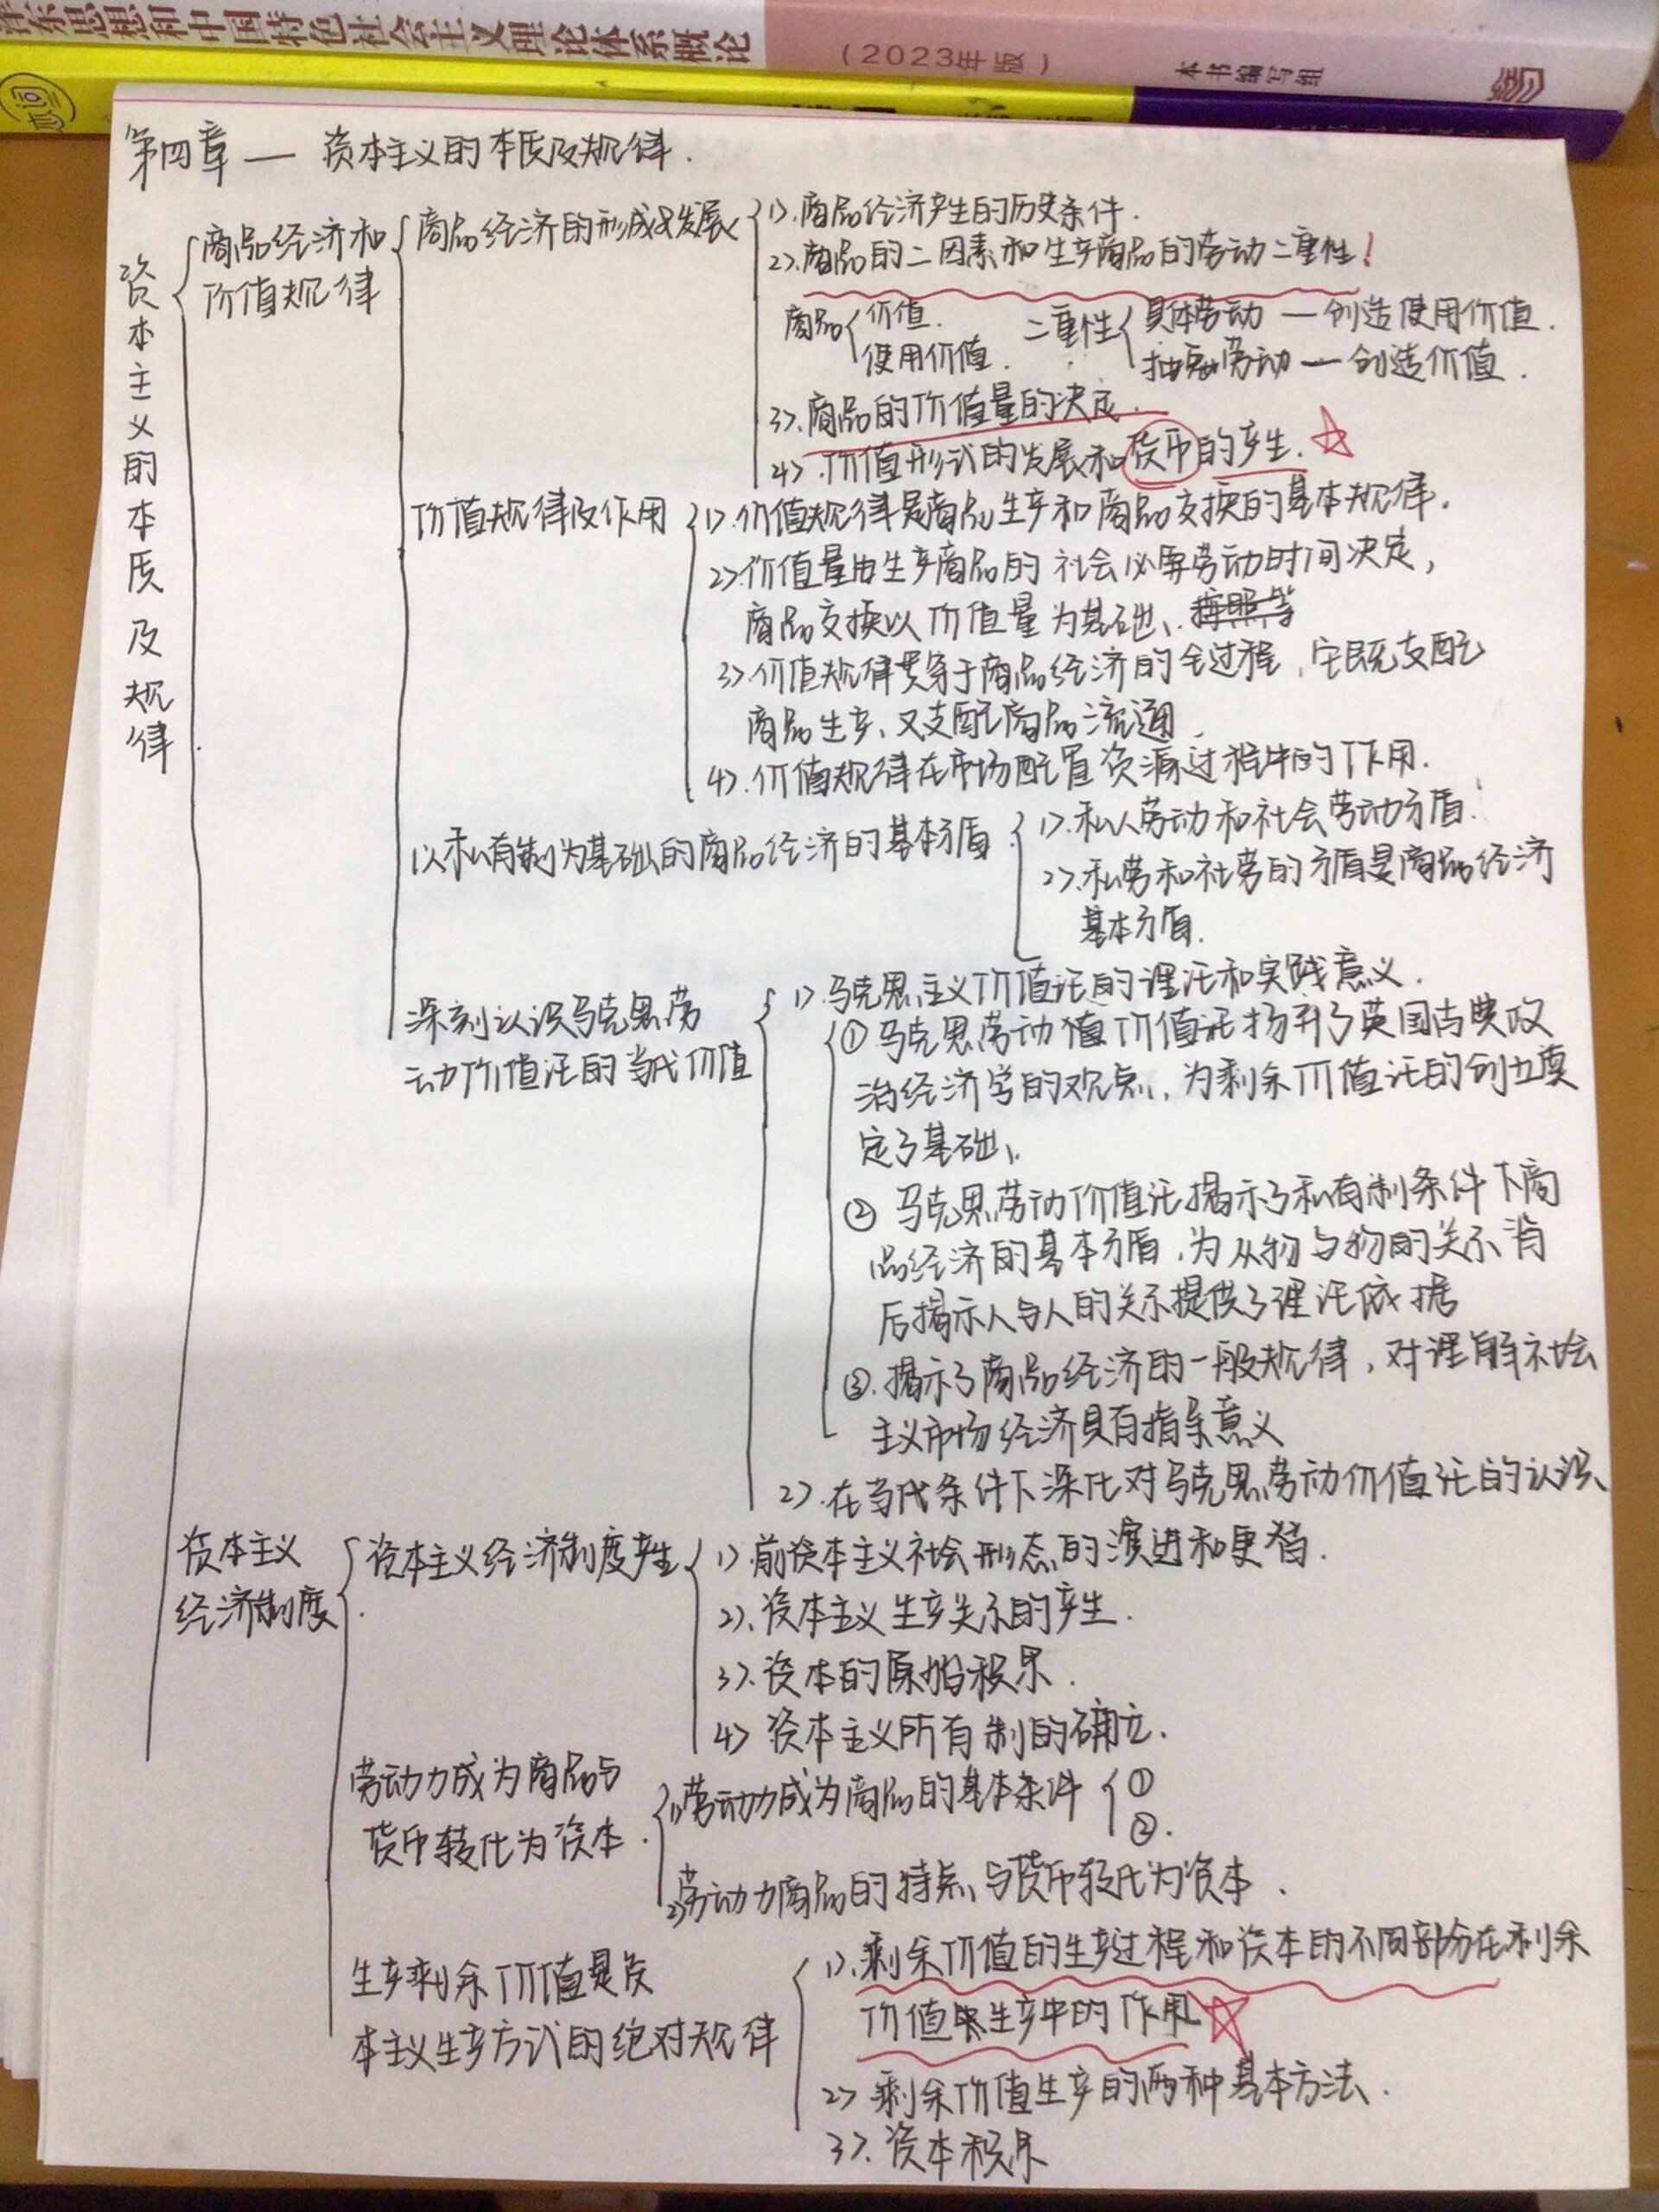 泽东思想和中国特色社会主义理论体系概论
（2023年版）
本书编写组
第四章 — 资本主义的本质及规律.
资本主义的本质及规律
商品经济和
价值规律
商品经济的形成及发展
1>.商品经济产生的历史条件.
2>.商品的二因素和生产商品的劳动二重性!
商品
价值.
使用价值.
二重性
具体劳动 — 创造使用价值.
抽象劳动 — 创造价值.
3>.商品的价值量的决定.
4>.价值形式的发展和货币的产生.
价值规律及作用
1>.价值规律是商品生产和商品交换的基本规律.
2>.价值量由生产商品的社会必要劳动时间决定,
商品交换以价值量为基础、
3>.价值规律贯穿于商品经济的全过程,它既支配
商品生产、又支配商品流通.
4>.价值规律在市场配置资源过程中的作用.
以私有制为基础的商品经济的基本矛盾
1>.私人劳动和社会劳动矛盾.
2>.私劳和社劳的矛盾是商品经济
基本矛盾.
深刻认识马克思劳
动价值论的当代价值
1>.马克思主义价值论的理论和实践意义.
① 马克思劳动值价值论扬弃了英国古典政
治经济学的观点,为剩余价值论的创立奠
定了基础、
② 马克思劳动价值论揭示了私有制条件下商
品经济的基本矛盾,为从物与物的关系背
后揭示人与人的关系提供了理论依据
③.揭示了商品经济的一般规律,对理解社会
主义市场经济具有指导意义
2>.在当代条件下深化对马克思劳动价值论的认识、
资本主义
经济制度
资本主义经济制度产生
1>.前资本主义社会形态的演进和更替.
2>.资本主义生产关系的产生.
3>.资本的原始积累.
4> 资本主义所有制的确立.
劳动力成为商品与
货币转化为资本.
1>劳动力成为商品的基本条件
①
②.
2>劳动力商品的特点与货币转化为资本.
生产剩余价值是资
本主义生产方式的绝对规律
1>.剩余价值的生产过程和资本的不同部分在剩余
价值生产中的作用
2> 剩余价值生产的两种基本方法.
3>.资本积累